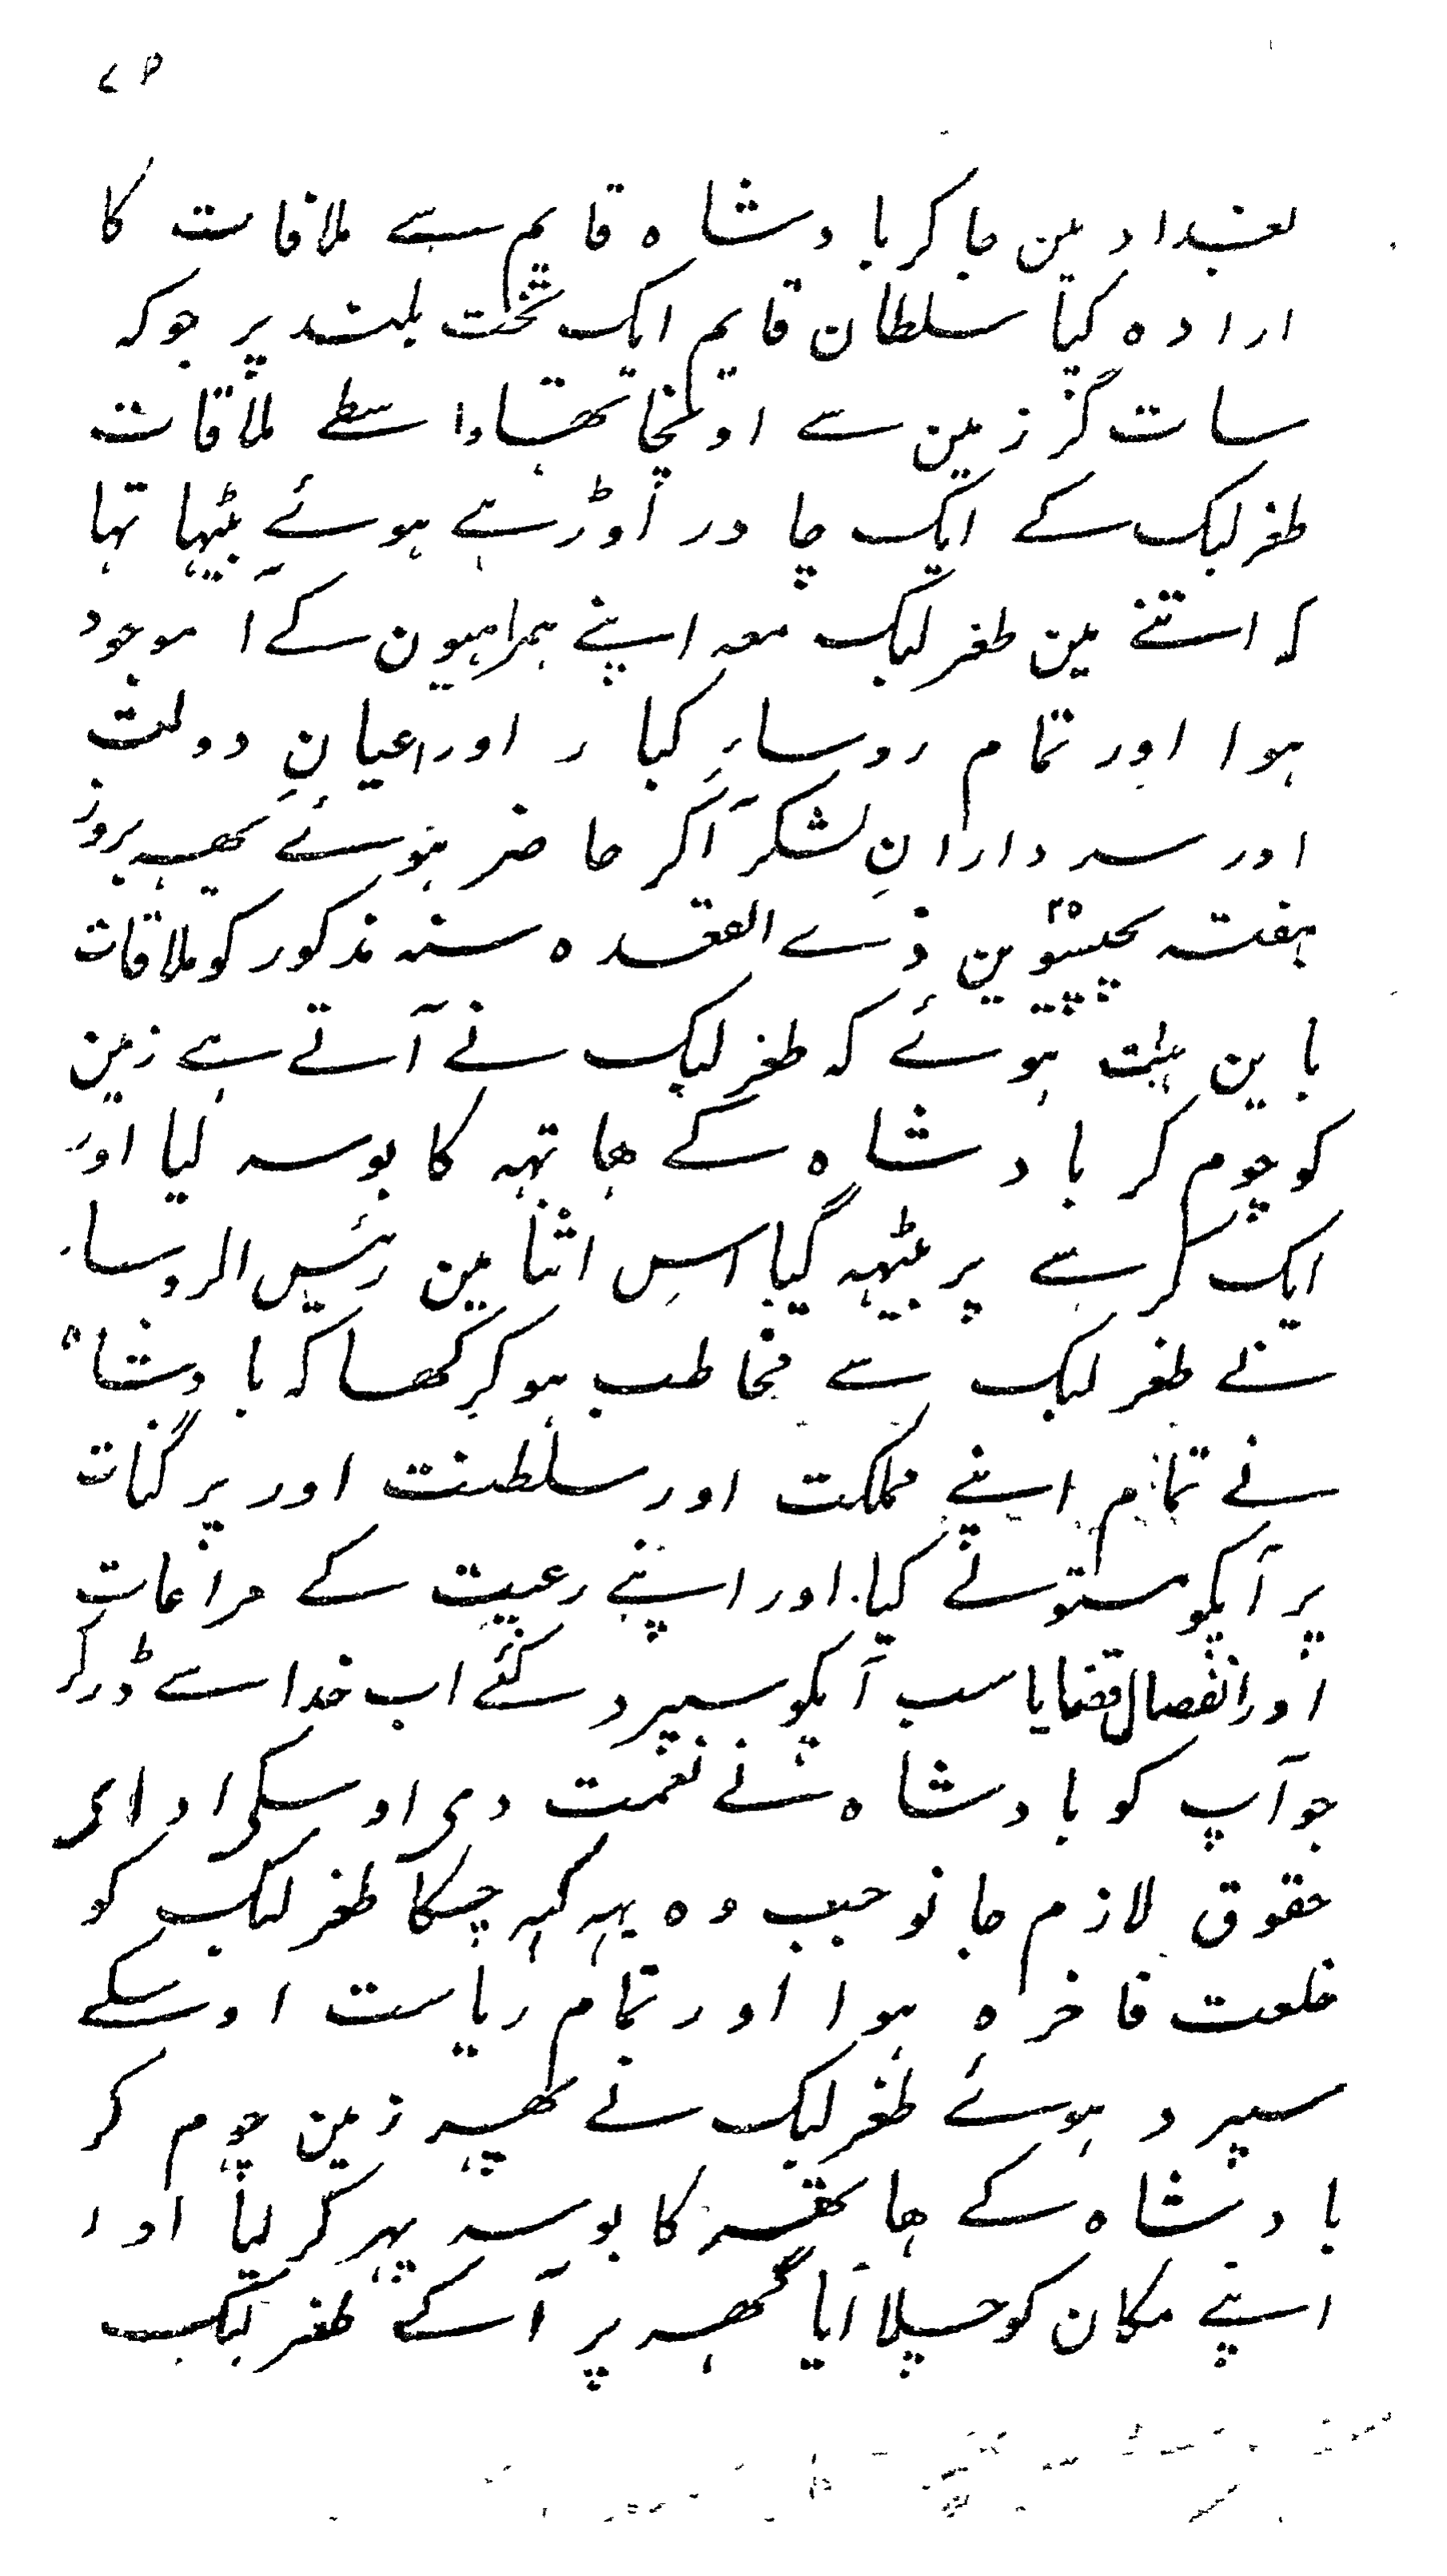 بغداد مین جا کر بادشاہ قایم سے ملاقات کا
ارادہ کیا سلطان قایم ایک تخت بلند پر جو کہ
سات گز زمین سے اونچا تھا واسطے ملاقات
طغرلبک کے ایک چادر اوڑہے ہوئے بیٹہا تہا
کہ اتنے مین طغرلبک معہ اپنے ہمراہیون کے آ موجود
ہوا اور تمام روساء کبار اور اعیانِ دولت
اور سردارانِ لشکر آکر حاضر ہوئے یھہ بروز
ہفتہ پچیسویں ۲۵ ذے القعدہ سنہ مذکور کو ملاقات
باین ہیئت ہوئے کہ طغرلبک نے آتے ہے زمین
کو چوم کر بادشاہ کے ھاتہہ کا بوسہ لیا اور
ایک کرسے پر بیٹہہ گیا اسِ اثنا مین رئیس الروساء
نے طغرلبک سے مخاطب ہو کر کھا کہ بادشاہ
نے تمام اپنے مملکت اور سلطنت اور پرگنات
پر آپکو مستولے کیا اور اپنے رعیت کے مراعات
اور انفصال قضایا سب آپکو سپرد کئے اب خدا سے ڈر کر
جو آپ کو بادشاہ نے نعمت دی اوسکی ادای
حقوق لازم جانو جب وہ یہہ کہہ چکا طغرلبک کو
خلعت فاخرہ ہوا اور تمام ریاست اوسکے
سپرد ہوئے طغرلبک نے پھر زمین چوم کر
بادشاہ کے ھاتھہ کا بوسہ پہر کر لیا اور
اپنے مکان کو چلا آیا گھہ پر آ کے طغرلبک